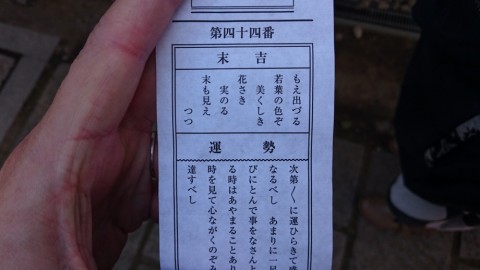 第四十四番
末吉
もえ出づる
若葉の色ぞ
美くしき
花さき
実のる
末も見え
つつ
運勢
次第〱に運ひらきて
なるべし あまりに一足
びにとんで事をなさんと
る時はあやまることあり
時を見て心ながくのぞみ
達すべし